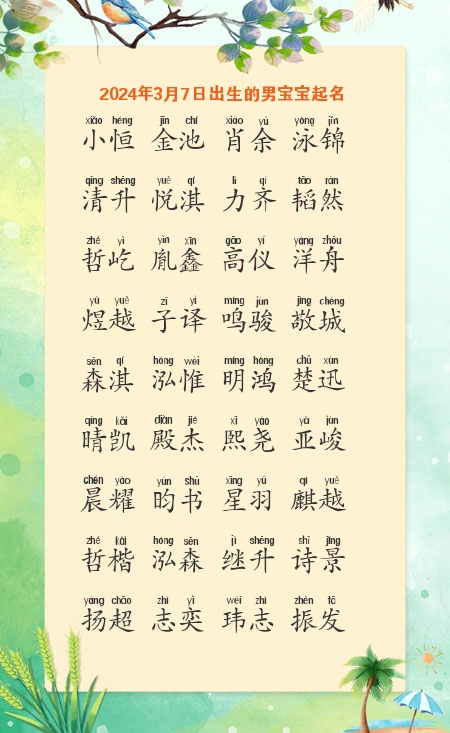 2024年3月7日出生的男宝宝起名
xiǎo héng jīn chí xiāo yú yǒng jǐn
小恒 金池 肖余 泳锦
qīng shēng yuè qí lì qí tāo rán
清升 悦淇 力齐 韬然
zhé yì yìn xīn gāo yí yáng zhōu
哲屹 胤鑫 高仪 洋舟
yù yuè zǐ yì míng jùn jìng chéng
煜越 子译 鸣骏 敬城
sēn qí hóng wéi míng hóng chǔ xùn
森淇 泓惟 明鸿 楚迅
qíng kǎi diàn jié xī yáo yà jùn
晴凯 殿杰 熙尧 亚峻
chén yào yún shū xīng yǔ qí yuè
晨耀 昀书 星羽 麒越
zhé kǎi hóng sēn jì shēng shī jǐng
哲楷 泓森 继升 诗景
yáng chāo zhì yì wěi zhì zhèn fā
扬超 志奕 玮志 振发